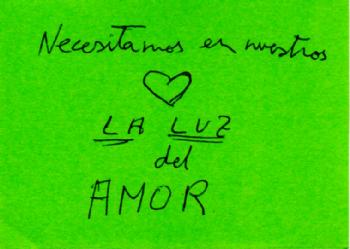 Necesitamos en nuestros
LA LUZ
del
AMOR